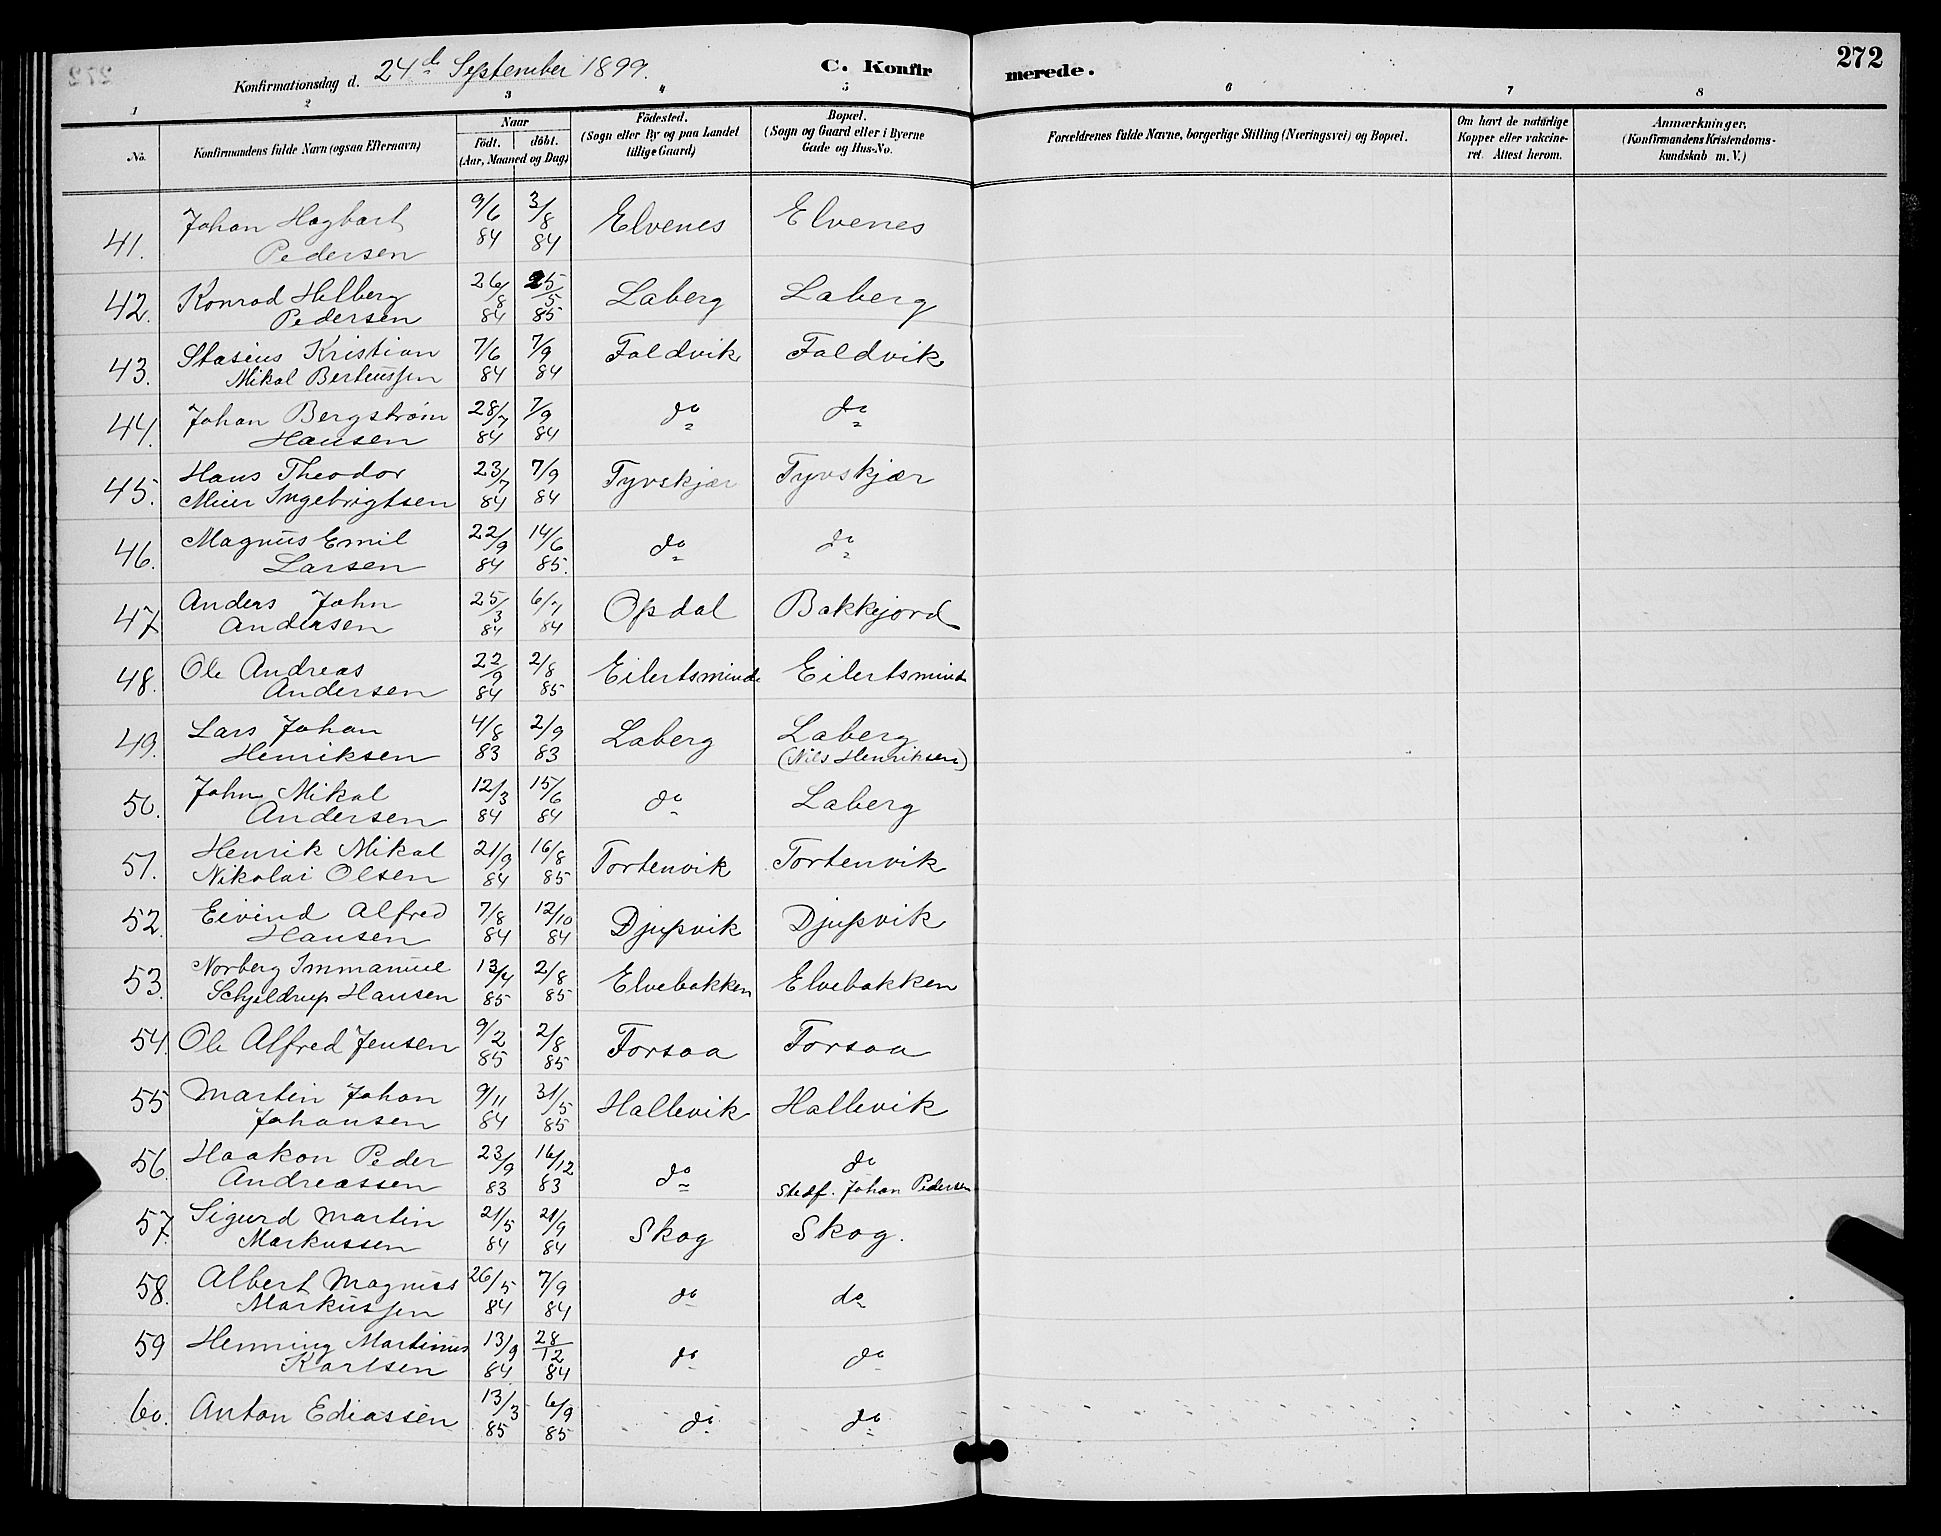 272
Konfirmationsdag d. 24de September 1899.
C. Konfirmerede.
1 2 3 4 5 6 7 8
No.
Konfirmandens fulde Navn (ogsaa Efternavn)
Naar
født. døbt.
(Aar, Maaned og Dag)
Fødested.
(Sogn eller By og paa Landet
tillige Gaard)
Bopæl.
(Sogn og Gaard eller i Byerne
Gade og Hus-No.
Forældrenes fulde Navne, borgerlige Stilling (Næringsvei) og Bopæl.
Om havt de naturlige
Kopper eller vakcine-
ret. Attest herom.
Anmærkninger.
(Konfirmandens Kristendoms-
kundskab m. V.)
41. Johan Hagbart 9/6 3/8 Elvenes Elvenes
Pedersen 84 84
42. Konrad Hilberg 26/8 25/5 Laberg Laberg
Pedersen 84 85
43. Stasius Kristian 7/6 7/9 Foldvik Foldvik
Mikal Berteussen 84 84
44. Johan Bergstrøm 28/7 7/9 do do
Hansen 84 84
45. Hans Theodor 23/7 7/9 Tyvskjær Tyvskjær
Meier Ingebrigtsen 84 84
46. Magnus Emil 22/9 14/6 do do
Larsen 84 85.
47. Anders John 25/3 6/7 Opdal Bakkejord
Andersen 84 84
48. Ole Andreas 22/9 2/8 Eilertsminde Eilertsminde
Andersen 84 85
49. Lars Johan 4/8 2/9 Laberg Laberg
Henriksen 83 83 (Nils Henriksen)
50. John Mikal 12/3 15/6 do Laberg
Andersen 84 84
51. Henrik Mikal 21/9 16/8 Tortenvik Tortenvik
Nikolai Olsen 84 85
52. Eivind Alfred 7/8 12/10 Djupvik Djupvik
Hansen 84 84
53. Norberg Immanuel 13/4 2/8 Elvebakken Elvebakken
Schjeldrup Hansen 85 85
54. Ole Alfred Jensen 9/2 2/8 Forsaa Forsaa
85 85
55 Martin Johan 9/11 31/5 Hallevik Hallevik
Johansen 84 85
56. Haakon Peder 23/9 16/12 do do
Andreassen 83 83 Stedf. Johan Pedersen
57. Sigurd Martin 21/5 21/9 Skog Skog.
Markussen 84 84
58. Albert Magnus 26/5 7/9 do do
Markussen 84 84
59 Henning Martinus 13/9 28/12 do do
Karlsen 84 84
60. Anton Ediassen 13/3 6/9 do do
85 85